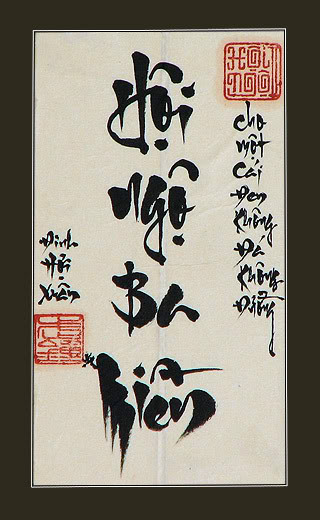 Hội
Ngộ
Ba
Miền
Cho
một
cái
Đen
không
Đá
không
Đường
Đinh
Hợi
Xuân